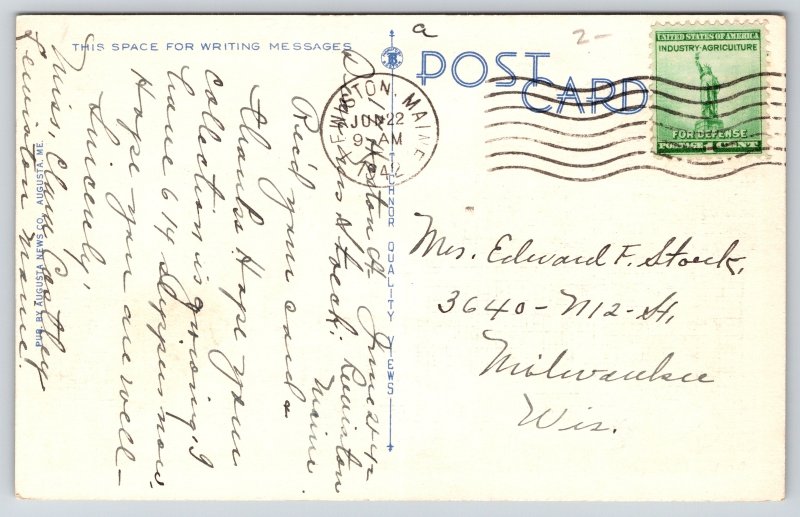 a
2-
THIS SPACE FOR WRITING MESSAGES
POST
CARD
UNITED STATES OF AMERICA
INDUSTRY·AGRICULTURE
FOR DEFENSE
POSTAGE 1 CENT
LEWISTON, MAINE
JUN 22
9 - AM
1942
Lewiston
Maine.
Dear Mrs Stock.
Rec'd your card &
thanks. Hope your
collection is growing. I
have 614 slippers now.
Hope you are well -
Sincerely,
Miss.
Lewiston Maine.
Mrs. Edward F. Stock,
3640 - N 12 - St,
Milwaukee
Wis.
TICHNOR QUALITY VIEWS
PUB. BY AUGUSTA NEWS CO., AUGUSTA, ME.